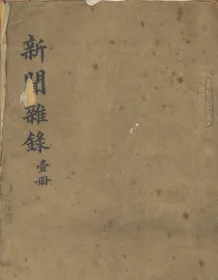 新聞雜錄
壹冊